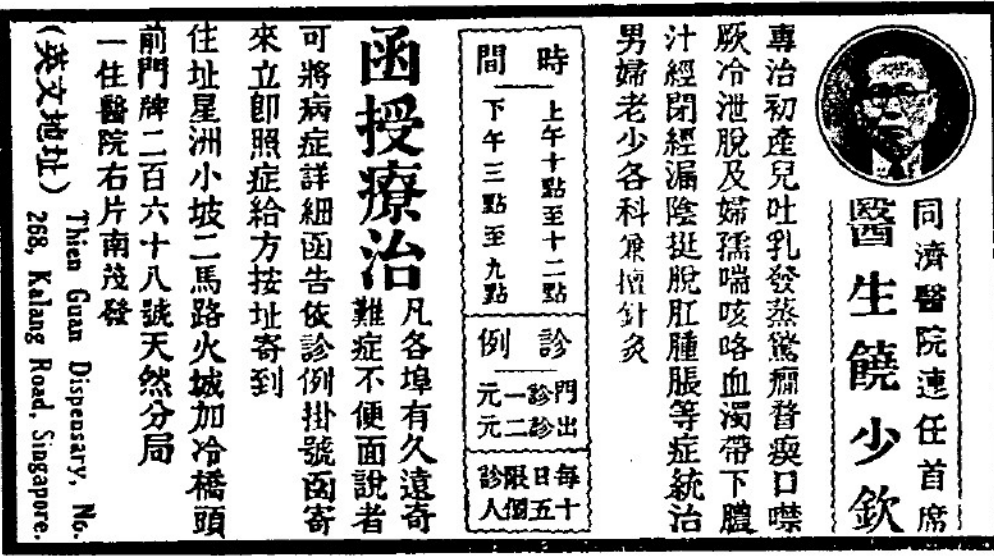 同濟醫院連任首席
醫生饒少欽
專治初產兒吐乳發蒸驚癇瞀瘼口噤
厥冷泄脫及婦孺喘咳咯血濁帶下膿
汁經閉經漏陰挺脫肛腫脹等症統治
男婦老少各科兼擅針灸
時間
上午十點至十二點
下午三點至九點
診例
門診一元
出診二元
每日限診
十五個人
函授療治
凡各埠有久遠奇
難症不便面說者
可將病症詳細函告依診例掛號函寄
來立即照症給方按址寄到
住址星洲小坡二馬路火城加冷橋頭
前門牌二百六十八號天然分局
一住醫院右片南茂發
(英文地址)
Thien Guan Dispensary, No.
268, Kalang Road, Singapore.